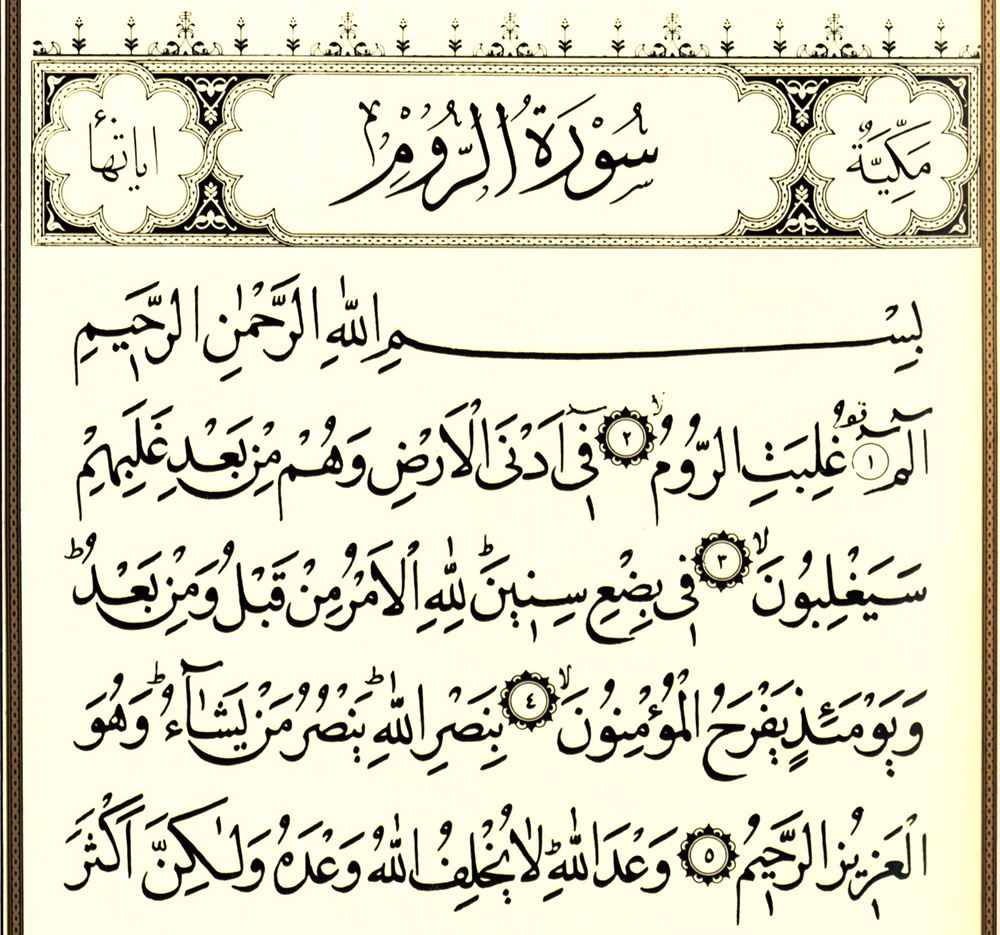 مَكِّيَّةٌ سُوْرَةُ الرُّوْمِ اٰيَاتُهَا ٦٠
بِسْمِ اللّٰهِ الرَّحْمٰنِ الرَّحِيمِ
الٓمٓ ۝١ غُلِبَتِ الرُّومُ ۝٢ فِىٓ اَدْنَى الْاَرْضِ وَهُمْ مِنْ بَعْدِ غَلَبِهِمْ
سَيَغْلِبُونَ ۝٣ فِى بِضْعِ سِنِينَ لِلّٰهِ الْاَمْرُ مِنْ قَبْلُ وَمِنْ بَعْدُ
وَيَوْمَئِذٍ يَفْرَحُ الْمُؤْمِنُونَ ۝٤ بِنَصْرِ اللّٰهِ يَنْصُرُ مَنْ يَشَآءُ وَهُوَ
الْعَزِيزُ الرَّحِيمُ ۝٥ وَعْدَ اللّٰهِ لَا يُخْلِفُ اللّٰهُ وَعْدَهُ وَلٰكِنَّ اَكْثَرَ